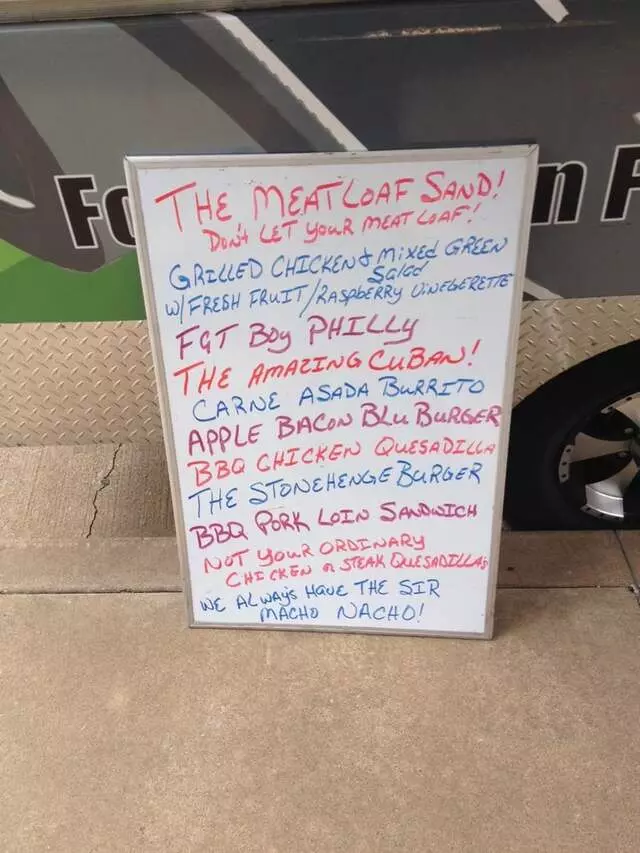 Fo
n F
THE MEATLOAF SAND!
DON't LET YOUR MEAT LOAF!
GRILLED CHICKEN & MIXED GREEN
Salad
W/ FRESH FRUIT / RASPBERRY VINEGERETTE
FAT BOY PHILLY
THE AMAZING CUBAN!
CARNE ASADA BURRITO
APPLE BACON BLU BURGER
BBQ CHICKEN QUESADILLA
THE STONEHENGE BURGER
BBQ PORK LOIN SANDWICH
NOT YOUR ORDINARY
CHICKEN or STEAK QUESADILLAS
WE ALWAYS HAVE THE SIR
MACHO NACHO!